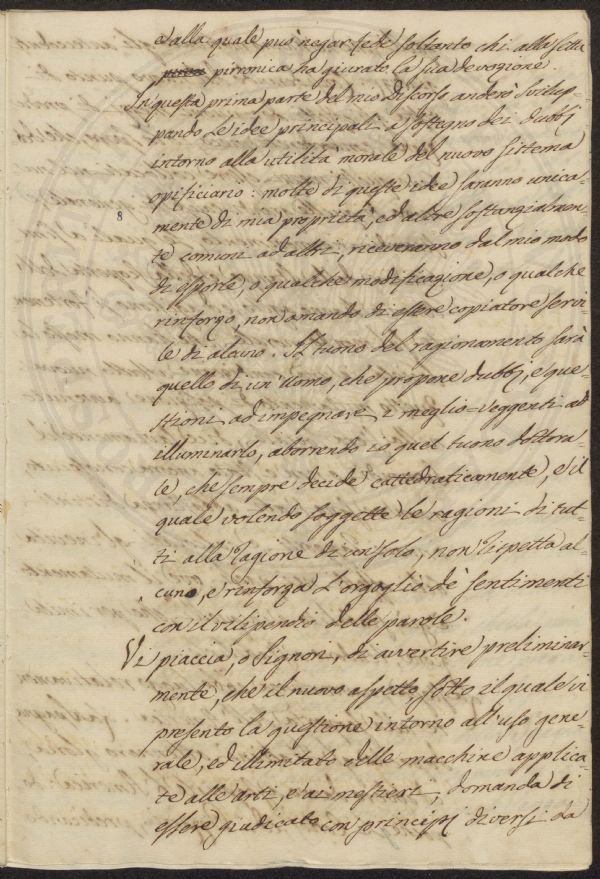 e alla quale può negar fede soltanto chi alla setta
pirronica ha giurato la sua devozione.
In questa prima parte del mio discorso anderò svilup-
pando le idee principali a sostegno dei dubbj
intorno alla utilità morale del nuovo sistema
opificiario: molte di queste idee saranno unica-
8
mente di mia proprietà, ed altre sostanzialmen-
te comuni ad altri, riceveranno dal mio modo
di esporle, o qualche modificazione, o qualche
rinforzo, non amando di essere copiatore servi-
le di alcuno. Il tuono del ragionamento sarà
quello di un'uomo, che propone dubbj, e que-
stioni ad impegnare i meglio=veggenti ad
illuminarlo, aborrendo io quel tuono dottora-
le, che sempre decide cattedraticamente, e il
quale volendo soggette le ragioni di tut-
ti alla ragione di un solo, non rispetta al-
cuno, e rinforza l'orgoglio de' sentimenti
con il vilipendio delle parole.
Vi piaccia, o Signori, di avvertire preliminar-
mente, che il nuovo aspetto sotto il quale vi
presento la questione intorno all'uso gene-
rale, ed illimitato delle macchine applica-
te alle arti, e ai mestieri, domanda di
essere giudicato con principj diversi da